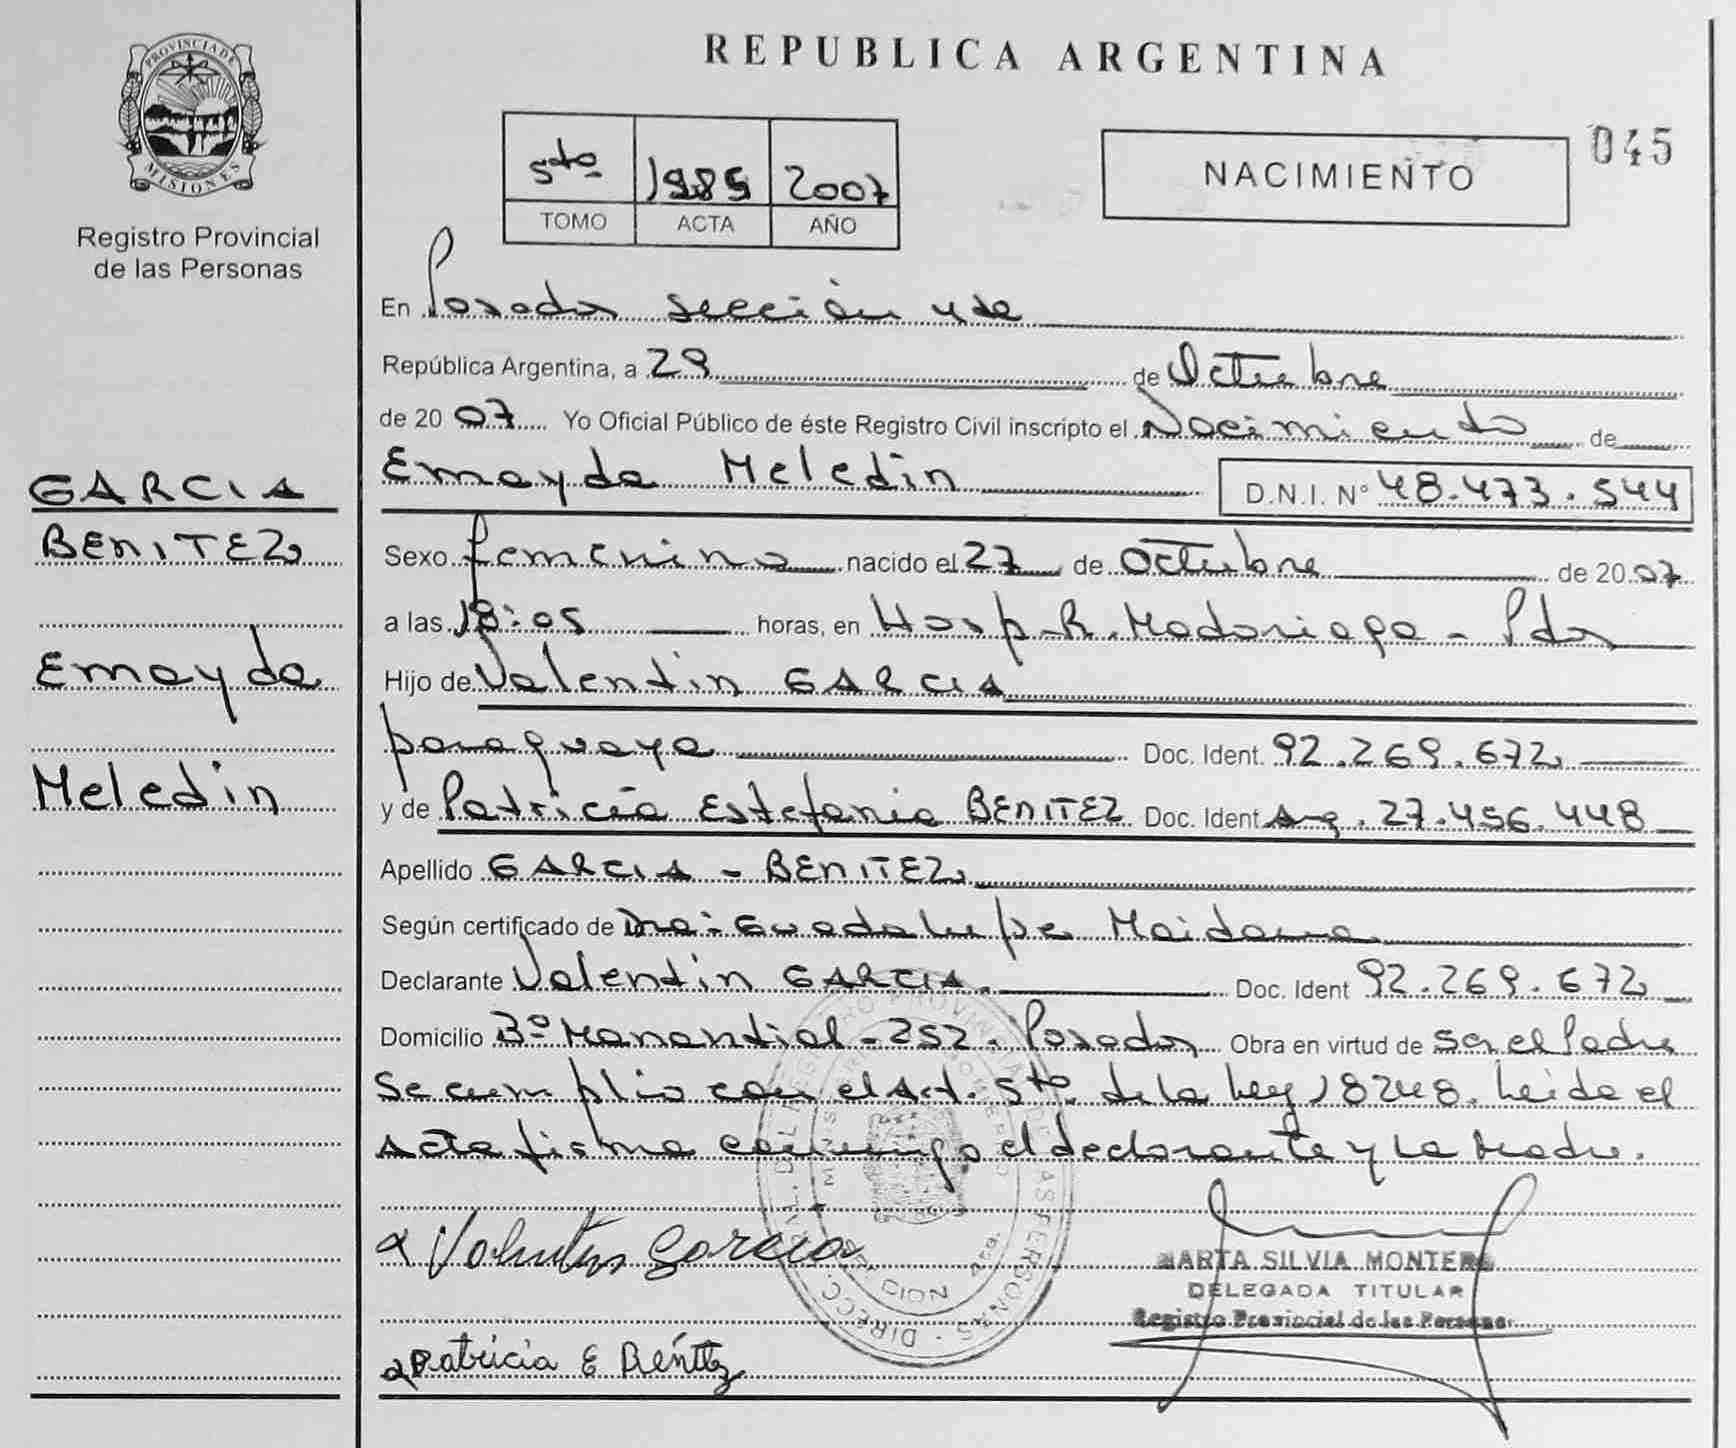 PROVINCIA DE
MISIONES
Registro Provincial
de las Personas
GARCIA
BENITEZ
Emayda
Meledin
REPUBLICA ARGENTINA
5to 1985 2007
TOMO ACTA AÑO
NACIMIENTO
045
En Posadas sección 4ta
República Argentina, a 29 de Octubre
de 2007 Yo Oficial Público de éste Registro Civil inscripto el Nacimiento de
Emayda Meledin D.N.I. N° 48.473.544
Sexo femenino nacido el 27 de Octubre de 2007
a las 18:05 horas, en Hosp. R. Madariaga - Pdas
Hijo de Valentin GARCIA
paraguaya Doc. Ident. 92.269.672
y de Patricia Estefania BENITEZ Doc. Ident Arg. 27.456.448
Apellido GARCIA - BENITEZ
Según certificado de Dra. Guadalupe Maidana
Declarante Valentin GARCIA. Doc. Ident 92.269.672
Domicilio Bº Manantial - 252. Posadas Obra en virtud de ser el Padre
Se cumplio con el Art. 5to. de la Ley 18248. Leida el
Acta firma conmigo el declarante y la Madre.
Valentin Garcia
Patricia E Benítez
MARTA SILVIA MONTERO
DELEGADA TITULAR
Registro Provincial de las Personas